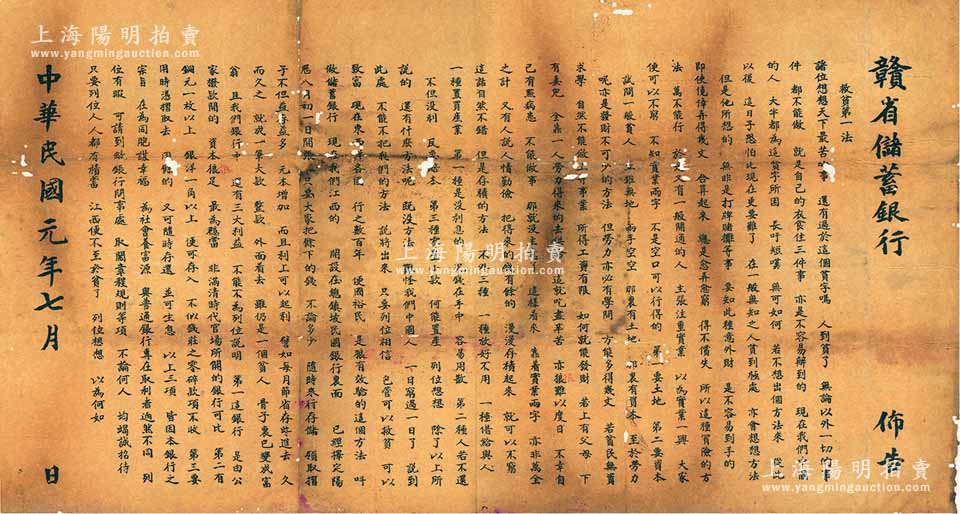 贛省儲蓄銀行 佈告
救貧第一法
諸位想想天下最苦的事 還有過於這個貧字嗎 人到貧了 無論以外一切的事
件 都不能做 就是自己的衣食住三件事 亦是不容易解到的 現在我們
的人 大半都為這貧字所困 長吁短嘆 無可如何 若不想出個方法來 從此
以後 這日子恐怕比現在更要難了 在一般無知之人貧到極處 亦會想方法
但是他所想的 無非是打牌賭攤等事 要知此種意外財 是不容易到手的
即使僥倖弄得幾文 合算起來 總是愈弄愈窮 得不償失 所以這種冒險的方
法 萬不能行 於是有一般開通的人 主張注重實業 以為實業一興 大家
便可以不窮 不知實業兩字 不是空口可以行得的 第一要土地 第二要資本
試問一般貧人 雖無地 兩手空空 那裏有土地 那裏有資本 至於勞力
呢 亦是發財不可少的方法 但勞力亦必有學問 方能多得幾文 若貧民無資
求學 自然不能做 事業 所得工資有限 如何就能發財 若上有父母 下
有妻兒 全靠一人勞力得來的去 這就吃盡辛苦 亦很難以度日 不幸自
己有點病患 不能做事 那就沒 這樣看來 靠着實業兩字 亦非萬全
之計 又有人說人情勤儉 把得來的 有餘的 漫漫存積起來 就可以不窮
這話固然不錯 但是存積的方法 不 三種 一種放好不用 一種借給與人
一種置買產業 第一種是沒利息的 錢在手中 容易用散 第二種人若不還
不但沒利 反要 本 第三種 欵 何能置產 列位想想 除了以上所
說的 還有什麼方法呢 既沒方法 怪我們中國人 一日窮過一日了 說到
此處 不能不把我們的方法 說將出來 只要列位相信 包管可以救貧 可以
致富 現在東西洋各國 行之數百年 便國裕民 是狠有效驗的這個方法 呌
做儲蓄銀行 現 我們江西的 開設在總鎮坡民國銀行裏面 已經擇定陽
厯八月初一日開張 只要大家把餘下的錢 不論多少 隨時來行存儲 領取摺
子不但並 益多 元本增加 而且利上可以起利 譬如每月節省存些進去 久
而久之 就成一筆大欵 整欵 外面看去 雖仍是一個貧人 骨子裏已變成富
翁 且我們銀行中 還有三大利益 不能不為列位說明 第一這銀行 是由公
家撥欵開的 資本很足 最為穩當 非滿清時代官場所開的銀行可比 第二有
銅元一枚以上 銀洋一角以上 便可存入 不似錢莊之零碎款項不收 第三要
用時憑摺取去 用 的 又可隨時存還 並可生息 以上三項 皆因本銀行之
宗旨 在為同胞謀幸福 為社會養富源 與普通銀行專在取利者迥然不同 列
位有暇 可請到敝銀行問事處 取閱章程規則等項 不論何人 均竭誠招待
只要列位人人都有積蓄 江西便不至於貧了 列位想想 以為何如
中華民國元年七月 日
上海陽明拍賣
www.yangmingauction.com
上海陽明拍賣
www.yangmingauction.com
上海陽明拍賣
www.yangmingauction.com
上海陽明拍賣
www.yangmingauction.com
上海陽明拍賣
www.yangmingauction.com